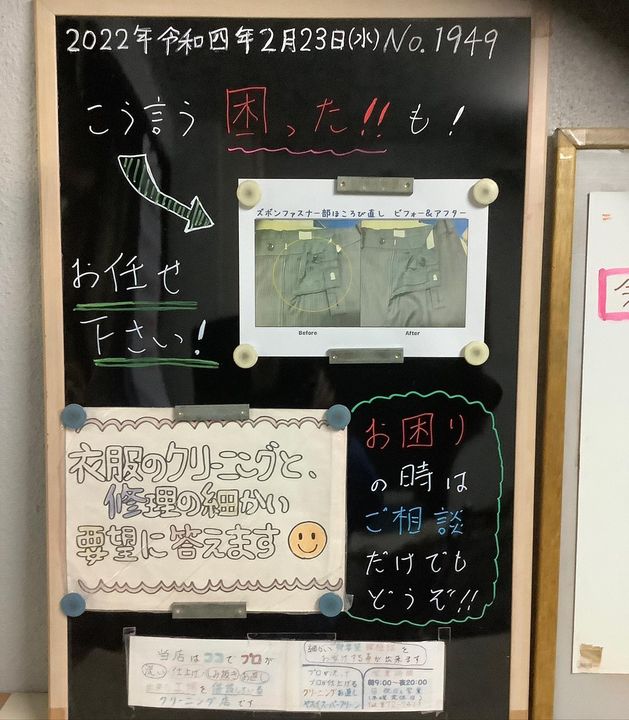 2022年令和四年2月23日(水)No.1949
こう言う困った!!も!
ズボンファスナー部ほころび直し ビフォー&アフター
Before
After
お任せ
下さい!
お困り
の時は
ご相談
だけでも
どうぞ!!
衣服のクリーニングと、
修理の細かい
要望に答えます
当店はココでプロが
仕上げ しみ抜き お直し
クリーニング店です
細かい
プロが洗って
プロが仕上げる
クリーニングお直し
朝9:00~夜20:00